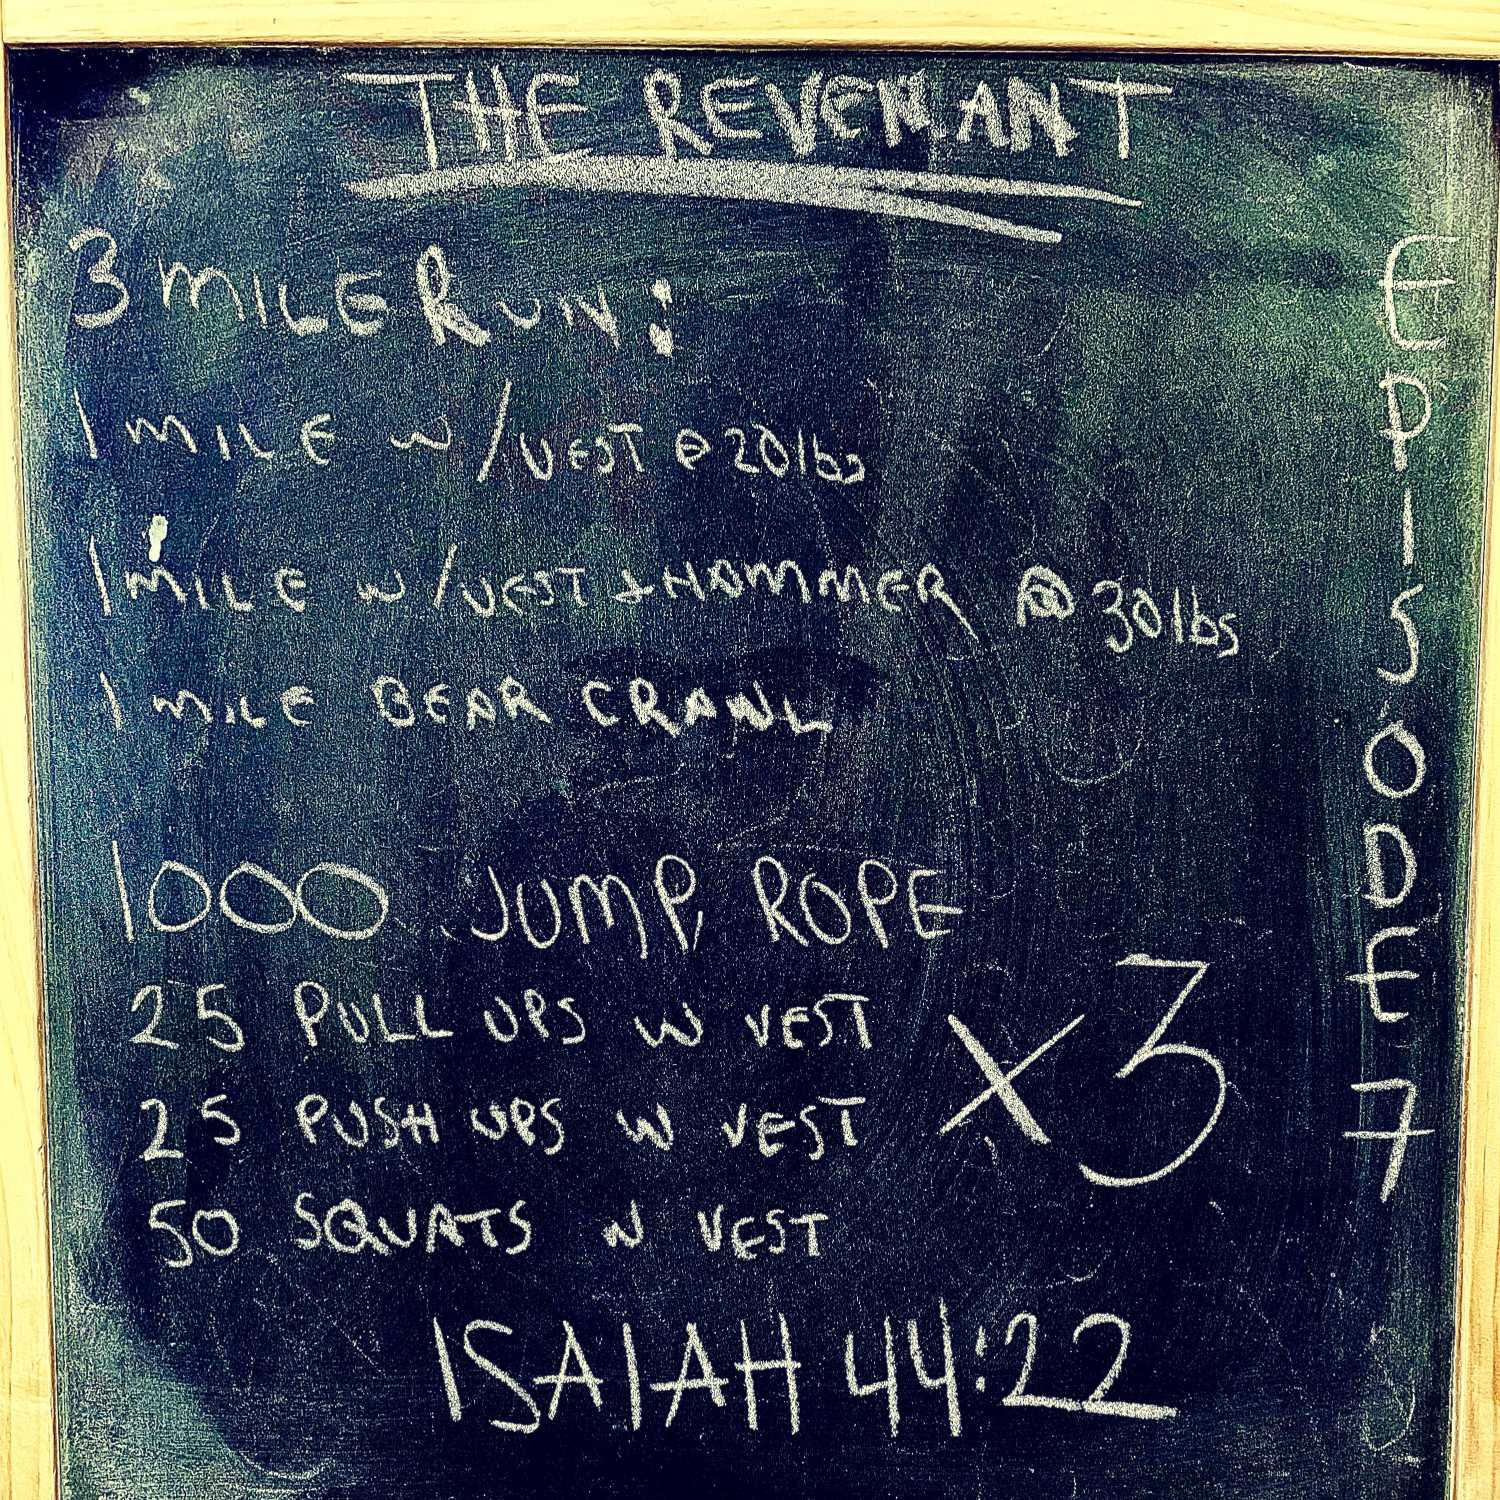 THE REVENANT
3 MILE RUN:
1 MILE W/VEST @ 20lbs
1 MILE W/VEST & HAMMER @ 30lbs
1 MILE BEAR CRAWL
1000 JUMP ROPE
25 PULL UPS W VEST
25 PUSH UPS W VEST
50 SQUATS W VEST
X3
ISAIAH 44:22
EPISODE 7